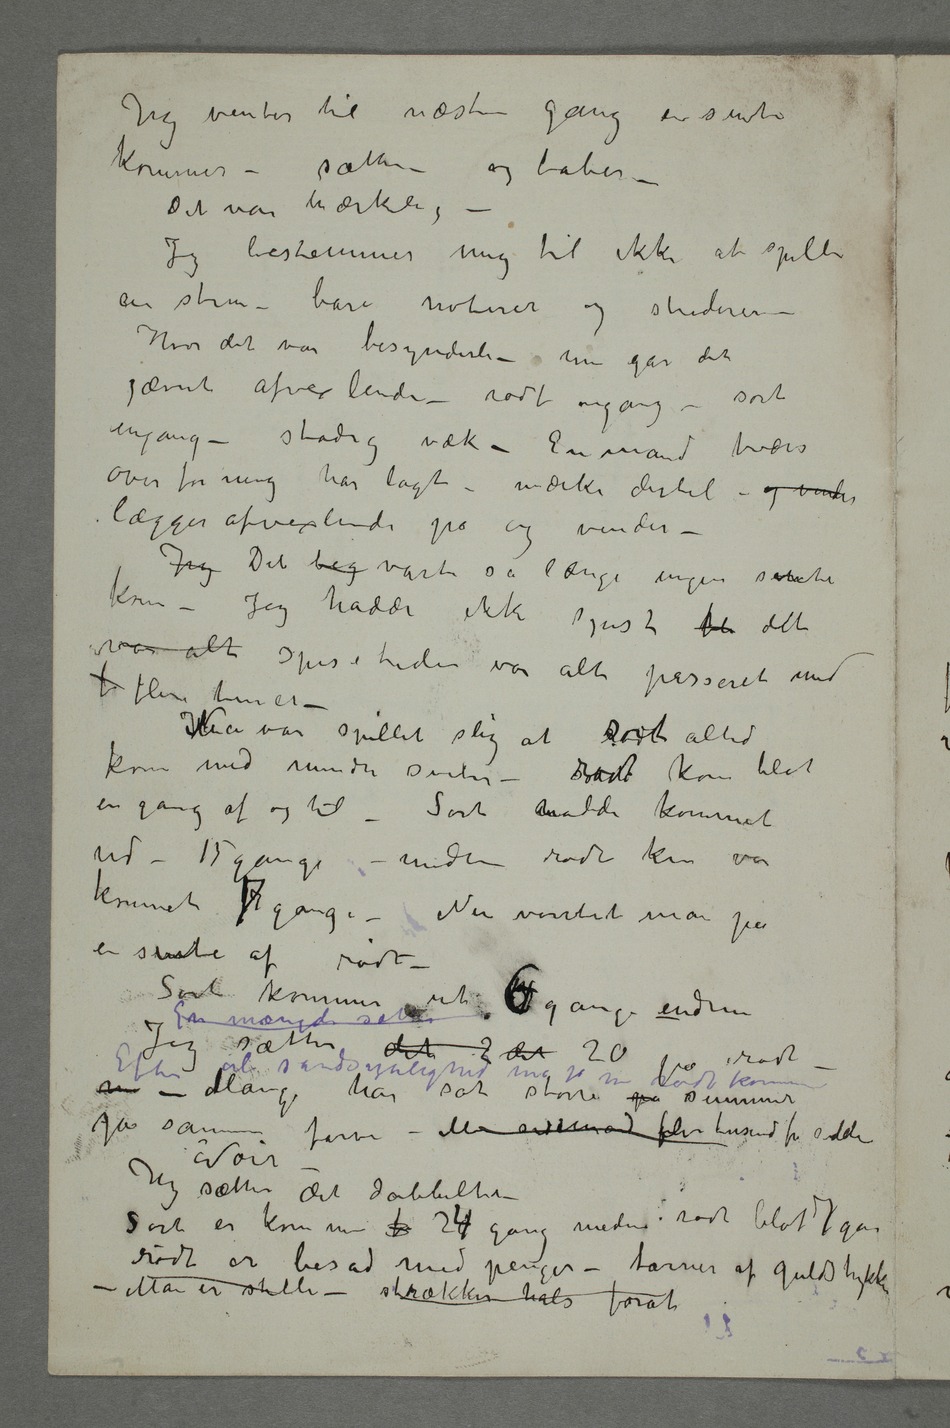 Jeg venter til næste gang en suite
kommer – sætter – og taber –
Det var mærkelig –
Jeg bestemmer mig til ikke at spille
en stun – bare noterer og studerer –
Hvor det var besynderli – nu går det
jævnt afvexlende – rødt engang – sort
engang – stadig væk – En mand tværs
over for mig har lagt – mærke dertil – og vinder
lægger afvexlende på og vinder –
Jeg Det beg varte så længe ingen suite
kom – Jeg hadde ikke spist det
var alt spisetiden var alt passeret med
t flere timer –
Nu var spillet slig at sort altid
kom med mindre suiter – rødt kom blot
en gang af og til – Sort hadde kommet
ud – 15 gange – medens rødt kun var
kommet 7 gange – Nu ventet man på
en suite af rødt –
Sort kommer ut 6 gange endnu
En mængde sætter
Jeg sætter det 2 det 20 på rødt –
Efter al sandsynlighed må jo nu Rødt komme
nu – Mange har sat større på summer
på samme farve – flere tusend fr sedler
Noir –
Jeg sætter det dobbelte –
Sort er kommen t 24 gang medens rødt blot 7 gan
rødt er besad med penger – tårner af guldstykker
– Man er stille – strækker hals forat